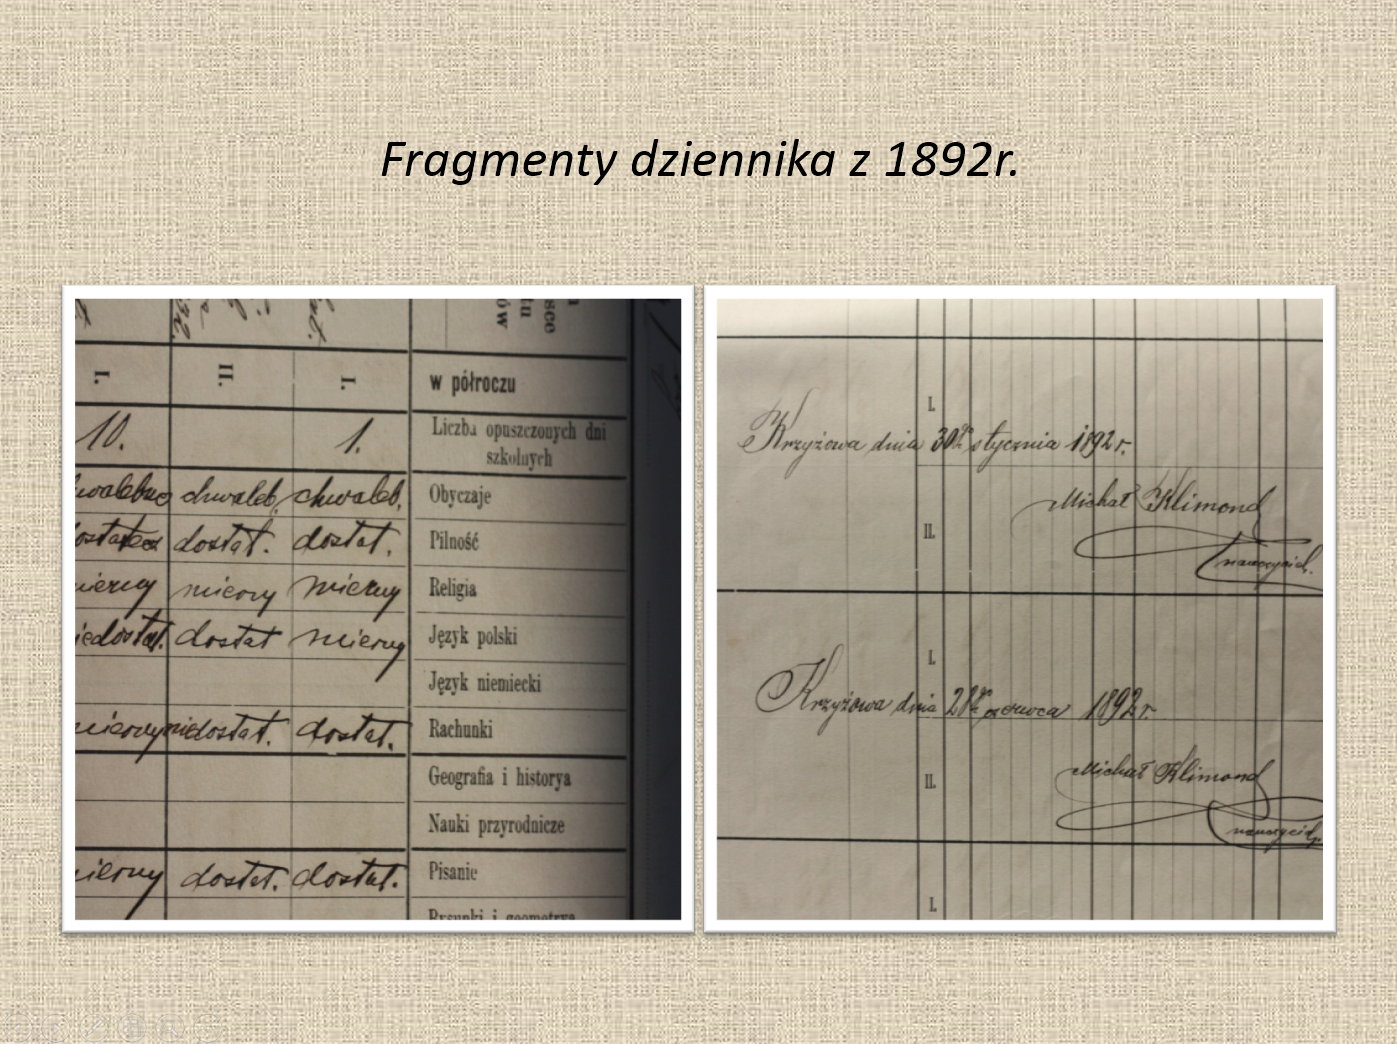 Fragmenty dziennika z 1892r.
I. II. I. w półroczu
10. 1. Liczba opuszczonych dni
szkolnych
chwaleb. chwaleb. Obyczaje
dostat. dostat. Pilność
mierny mierny Religia
dostat mierny Język polski
Język niemiecki
niedostat. dostat. Rachunki
Geografia i historya
Nauki przyrodnicze
dostat. dostat. Pisanie
Rysunki i geometrya
I.
Krzyżowa dnia 30go stycznia 1892 r.
Michał Klimond
II.
nauczyciel.
I.
Krzyżowa dnia czerwca 1892 r.
Michał Klimond
II.
nauczyciel.
I.